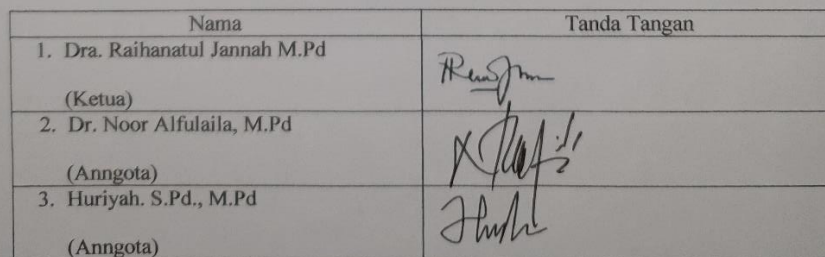 Nama Tanda Tangan
1. Dra. Raihanatul Jannah M.Pd
(Ketua)
2. Dr. Noor Alfulaila, M.Pd
(Anngota)
3. Huriyah. S.Pd., M.Pd
(Anngota)